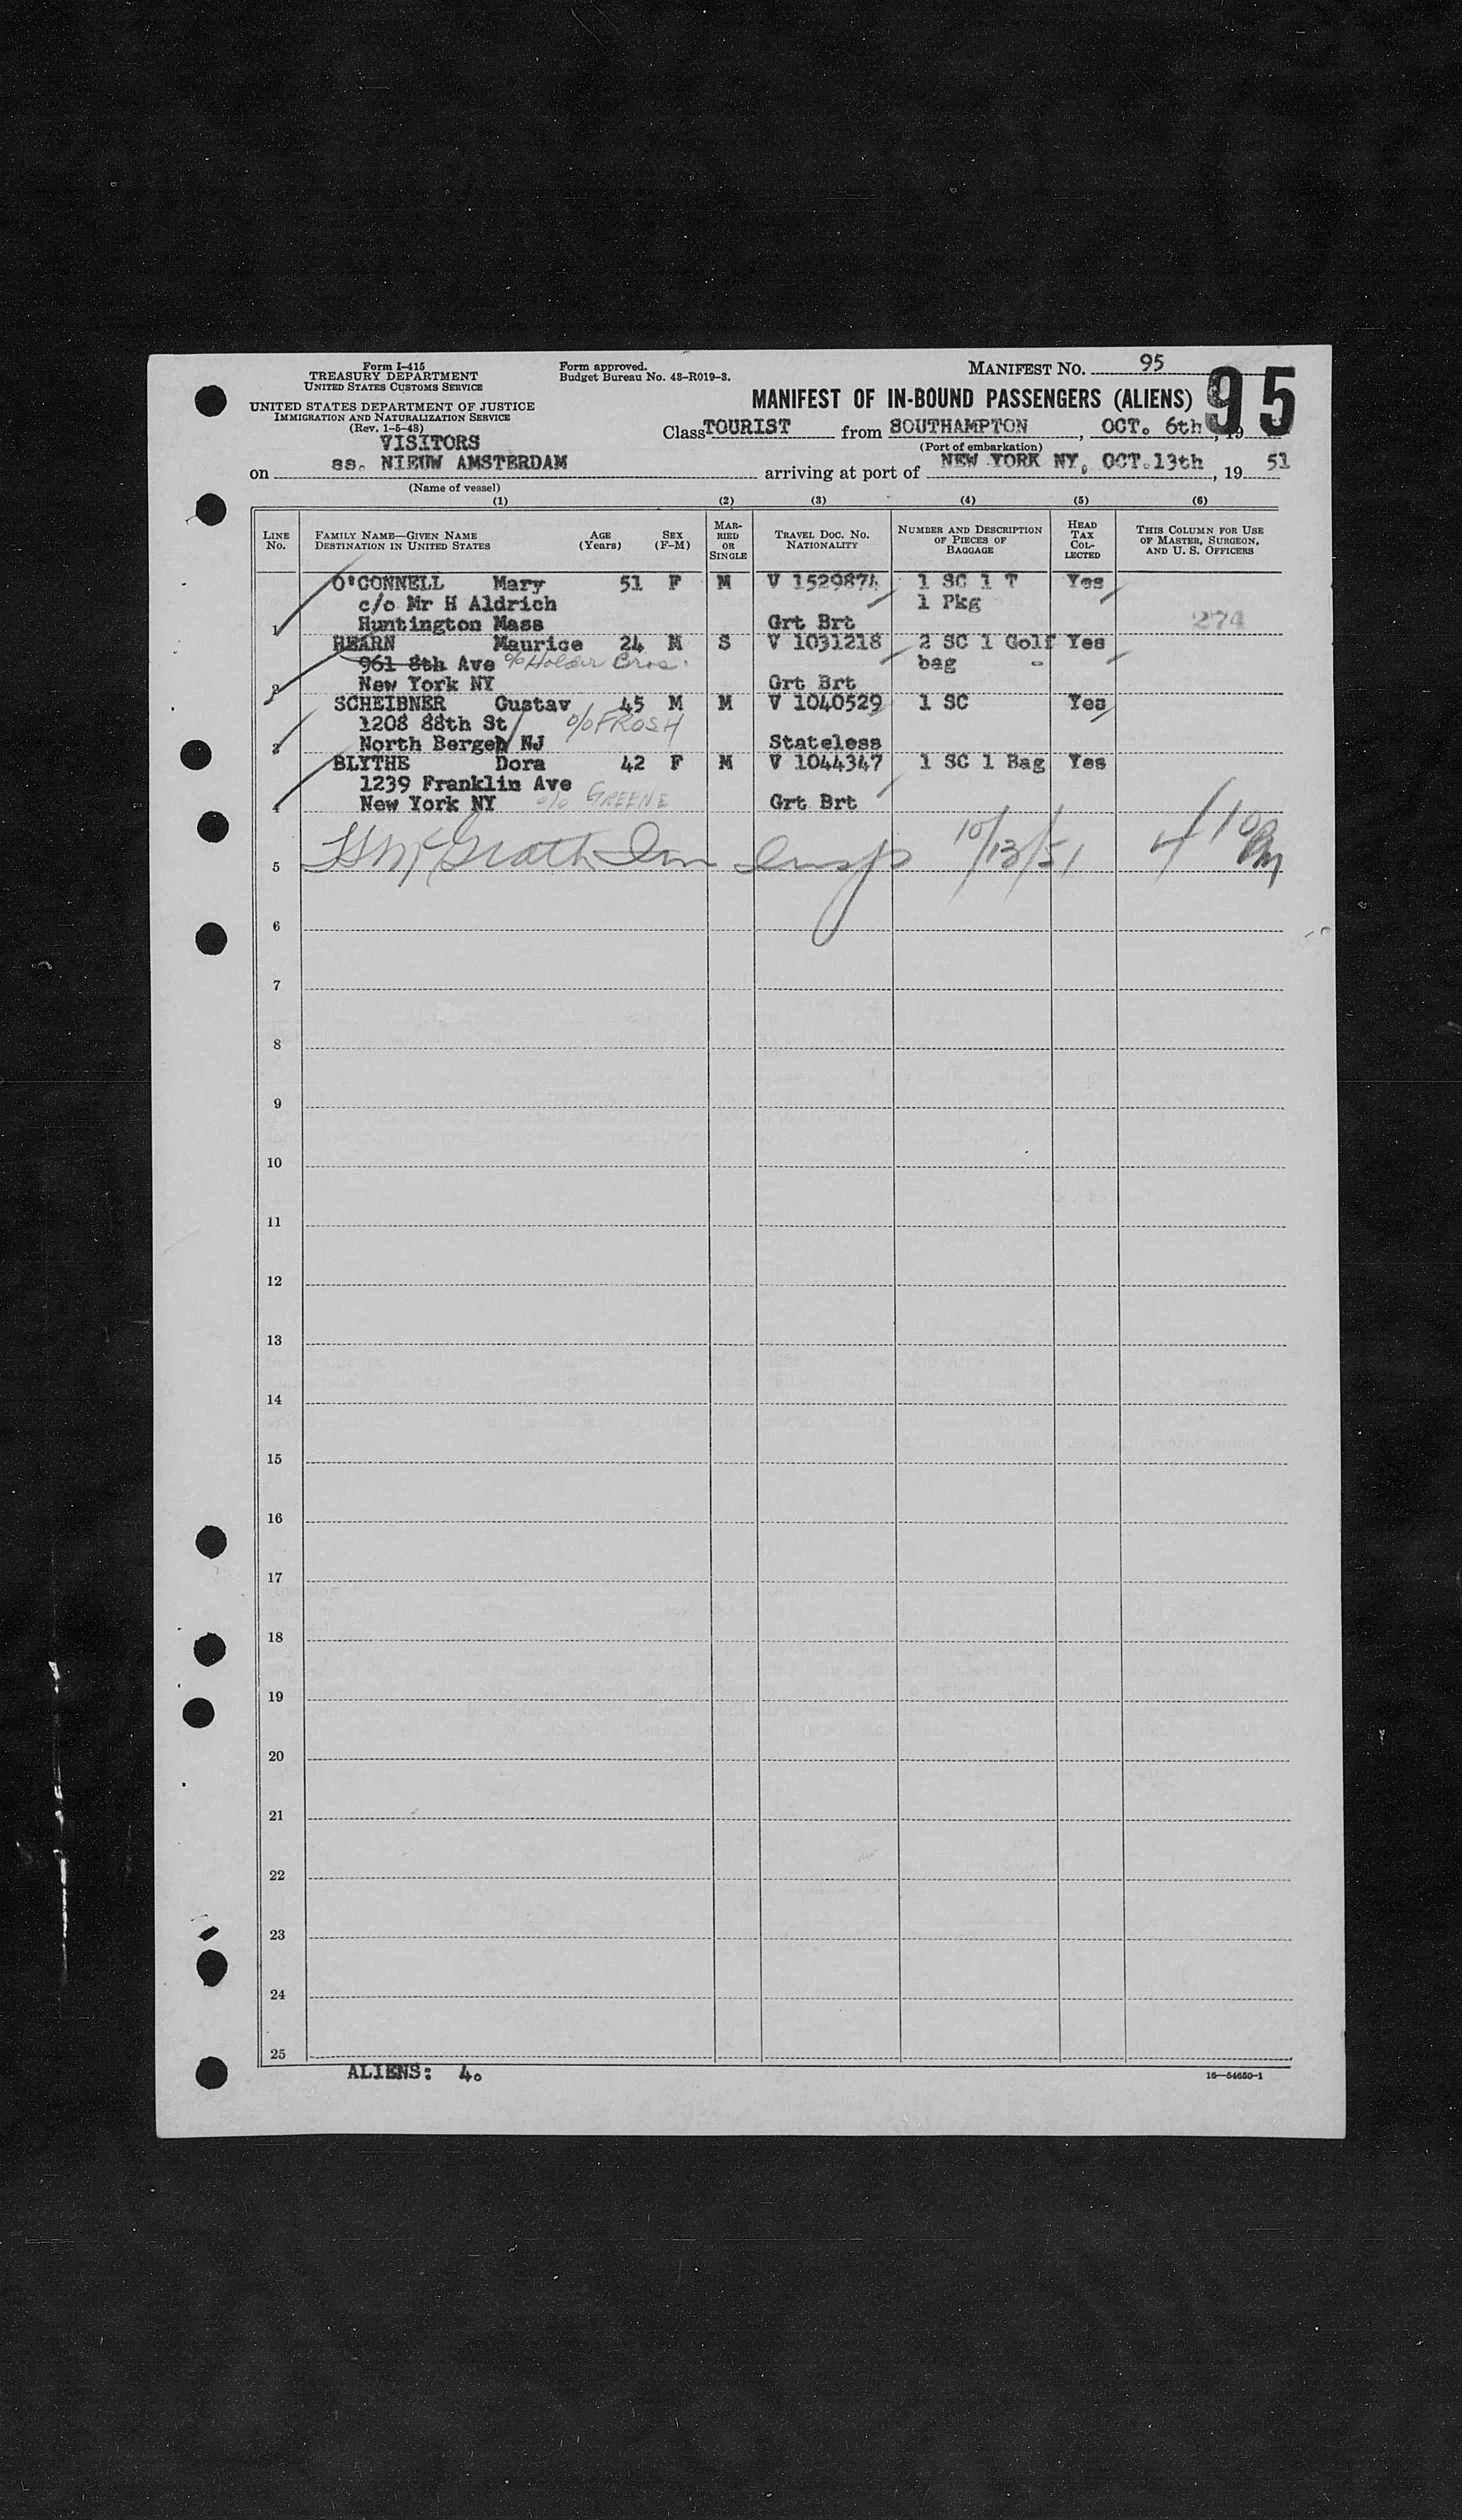 Form I-415
TREASURY DEPARTMENT
UNITED STATES CUSTOMS SERVICE
UNITED STATES DEPARTMENT OF JUSTICE
IMMIGRATION AND NATURALIZATION SERVICE
(Rev. 1-5-48)
Form approved.
Budget Bureau No. 43-R019-3.
MANIFEST No. 95
95
MANIFEST OF IN-BOUND PASSENGERS (ALIENS)
Class TOURIST from SOUTHAMPTON, OCT. 6th, 19
(Port of embarkation)
VISITORS
on ss. NIEUW AMSTERDAM arriving at port of NEW YORK NY, OCT.13th, 19 51
(Name of vessel)
(1) (2) (3) (4) (5) (6)
LINE No. FAMILY NAME—GIVEN NAME DESTINATION IN UNITED STATES AGE (Years) SEX (F-M) MARRIED OR SINGLE TRAVEL DOC. No. NATIONALITY NUMBER AND DESCRIPTION OF PIECES OF BAGGAGE HEAD TAX COLLECTED THIS COLUMN FOR USE OF MASTER, SURGEON, AND U. S. OFFICERS
O'CONNELL Mary 51 F M V 1529874 1 SC 1 T Yes
c/o Mr H Aldrich 1 Pkg
1 Huntington Mass Grt Brt 274
HEARN Maurice 24 M S V 1031218 2 SC 1 Golf Yes
961 8th Ave c/o Holder Bros. bag -
2 New York NY Grt Brt
SCHEIBNER Gustav 45 M M V 1040529 1 SC Yes
1208 88th St c/o FROSH
3 North Bergen NJ Stateless
BLYTHE Dora 42 F M V 1044347 1 SC 1 Bag Yes
1239 Franklin Ave
4 New York NY c/o GREENE Grt Brt
5 McGrath Imm Insp 10/13/51 4/10 Pm
6
7
8
9
10
11
12
13
14
15
16
17
18
19
20
21
22
23
24
25
ALIENS: 4.
16—54650-1